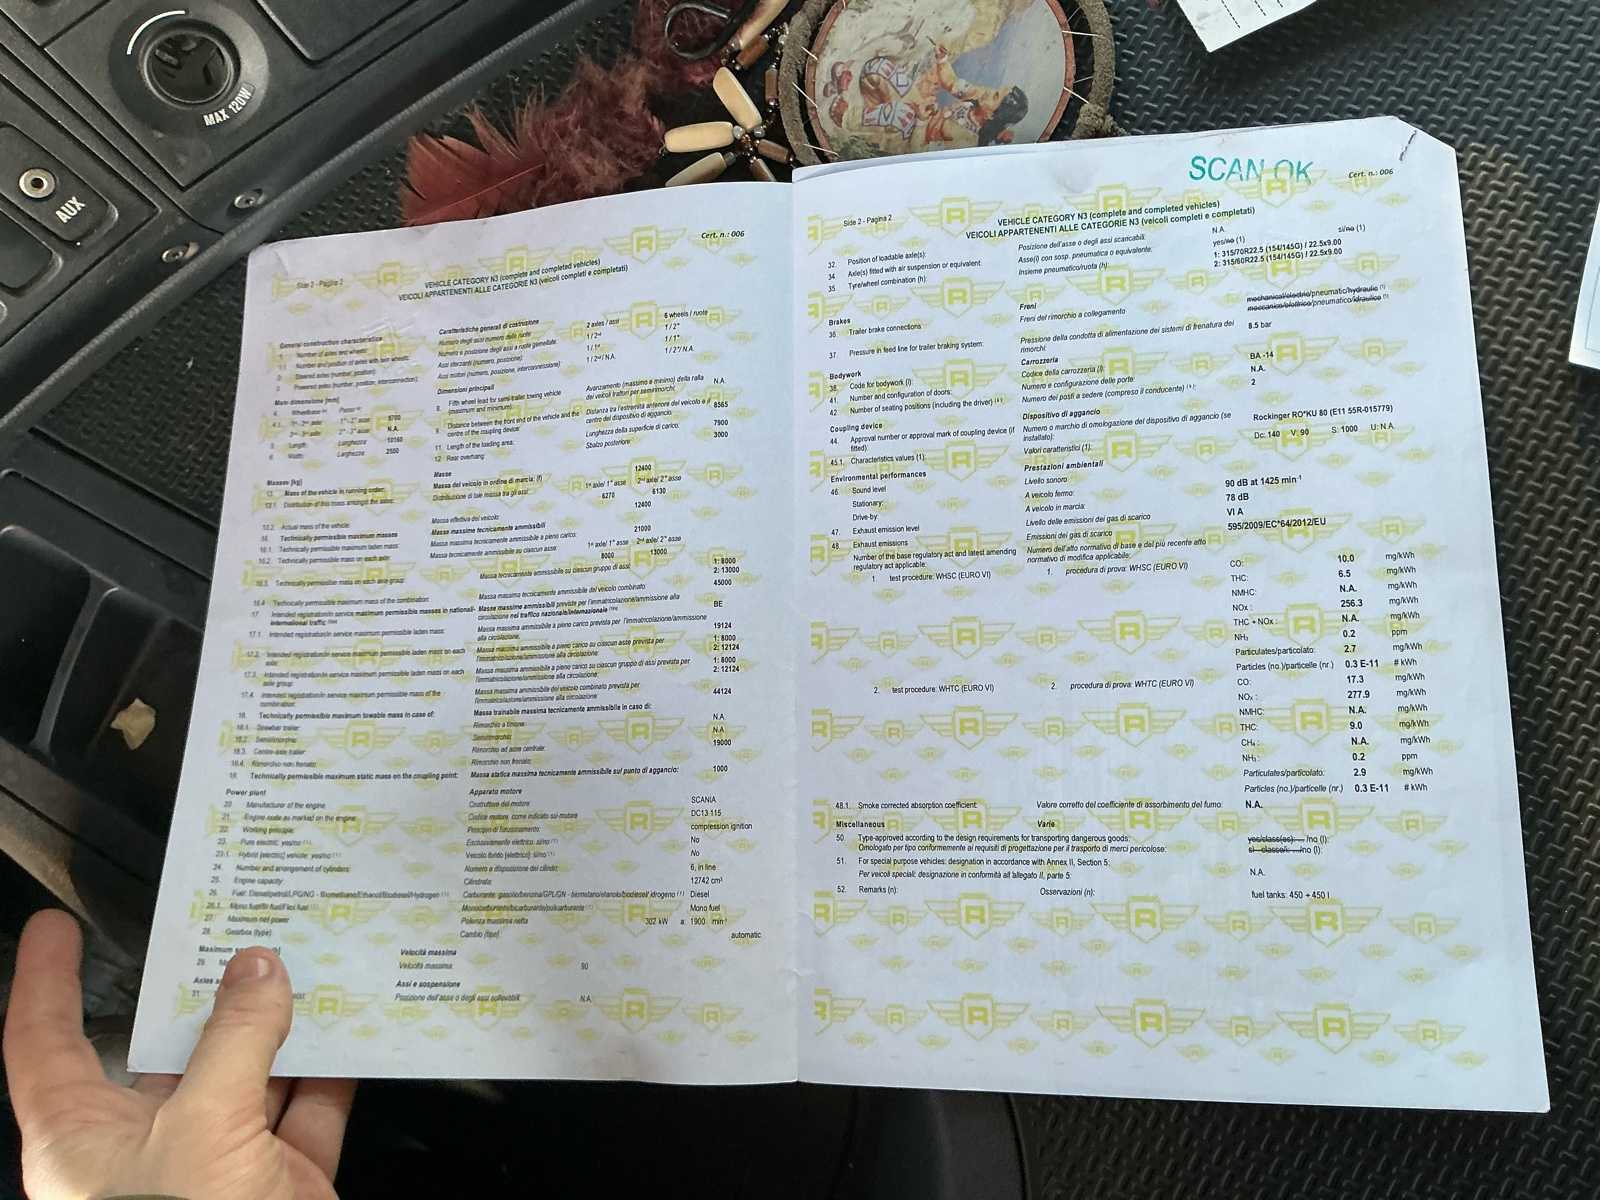 MAX 120W
AUX
Cert. n.: 006
Side 2 - Pagina 2
VEHICLE CATEGORY N3 (complete and completed vehicles)
VEICOLI APPARTENENTI ALLE CATEGORIE N3 (veicoli completi e completati)
General construction characteristics Caratteristiche generali di costruzione
1. Number of axles and wheels: Numero degli assi numero delle ruote: 2 axles / assi 6 wheels / ruote
1.1. Number and position of axles with twin wheels: Numero e posizione degli assi a ruote gemellate: 1 / 2nd 1 / 2°
2. Steered axles (number, position): Assi sterzanti (numero, posizione): 1 / 1st 1 / 1°
3. Powered axles (number, position, interconnection): Assi motori (numero, posizione, interconnessione): 1 / 2nd/ N.A. 1 / 2°/ N.A.
Main dimensions [mm] Dimensioni principali
4. Wheelbase Passo
4.1. 1st-2nd axle: 1°-2° asse: 5700
2nd-3rd axle: 2°-3° asse: N.A.
5. Length: Lunghezza: 10160
6. Width: Larghezza: 2550
8. Fifth wheel lead for semi-trailer towing vehicle (maximum and minimum): Avanzamento (massimo e minimo) della ralla dei veicoli trattori per semirimorchi: N.A.
9. Distance between the front end of the vehicle and the centre of the coupling device: Distanza tra l'estremità anteriore del veicolo e il centro del dispositivo di aggancio: 8565
11. Length of the loading area: Lunghezza della superficie di carico: 7900
12. Rear overhang: Sbalzo posteriore: 3000
Masses [kg] Masse
13. Mass of the vehicle in running order: Massa del veicolo in ordine di marcia: (f) 12400
13.1. Distribution of this mass amongst the axles: Distribuzione di tale massa tra gli assi: 1st axle/ 1° asse 2nd axle/ 2° asse
6270 6130
13.2. Actual mass of the vehicle: Massa effettiva del veicolo: 12400
16. Technically permissible maximum masses Masse massime tecnicamente ammissibili
16.1. Technically permissible maximum laden mass: Massa massima tecnicamente ammissibile a pieno carico: 21000
16.2. Technically permissible mass on each axle: Massa tecnicamente ammissibile su ciascun asse: 1st axle/ 1° asse 2nd axle/ 2° asse
8000 13000
16.3. Technically permissible mass on each axle group: Massa tecnicamente ammissibile su ciascun gruppo di assi: 1: 8000
2: 13000
16.4 Technically permissible maximum mass of the combination: Massa massima tecnicamente ammissibile del veicolo combinato 45000
17. Intended registration/in service maximum permissible masses in national/international traffic Masse massime ammissibili previste per l'immatricolazione/ammissione alla circolazione nel traffico nazionale/internazionale BE
17.1. Intended registration/in service maximum permissible laden mass: Massa massima ammissibile a pieno carico prevista per l'immatricolazione/ammissione alla circolazione: 19124
17.2. Intended registration/in service maximum permissible laden mass on each axle: Massa massima ammissibile a pieno carico su ciascun asse prevista per l'immatricolazione/ammissione alla circolazione: 1: 8000
2: 12124
17.3. Intended registration/in service maximum permissible laden mass on each axle group: Massa massima ammissibile a pieno carico su ciascun gruppo di assi prevista per l'immatricolazione/ammissione alla circolazione: 1: 8000
2: 12124
17.4. Intended registration/in service maximum permissible mass of the combination: Massa massima ammissibile del veicolo combinato prevista per l'immatricolazione/ammissione alla circolazione: 44124
18. Technically permissible maximum towable mass in case of: Massa trainabile massima tecnicamente ammissibile in caso di:
18.1. Drawbar trailer: Rimorchio a timone: N.A.
18.2. Semirimorchio: Semirimorchio: N.A.
18.3. Centre-axle trailer: Rimorchio ad asse centrale: 19000
18.4. Rimorchio non frenato: Rimorchio non frenato:
19. Technically permissible maximum static mass on the coupling point: Massa statica massima tecnicamente ammissibile sul punto di aggancio: 1000
Power plant Apparato motore
20. Manufacturer of the engine: Costruttore del motore: SCANIA
21. Engine code as marked on the engine: Codice motore, come indicato sul motore: DC13 115
22. Working principle: Principio di funzionamento: compression ignition
23. Pure electric: yes/no (1) Esclusivamente elettrico: sì/no (1) No
23.1. Hybrid [electric] vehicle: yes/no (1) Veicolo ibrido [elettrico]: sì/no (1) No
24. Number and arrangement of cylinders: Numero e disposizione dei cilindri: 6, in line
25. Engine capacity: Cilindrata: 12742 cm³
26. Fuel: Diesel/petrol/LPG/NG - Biomethane/Ethanol/Biodiesel/Hydrogen (1) Carburante: gasolio/benzina/GPL/GN - biometano/etanolo/biodiesel/ idrogeno (1) Diesel
26.1. Mono fuel/Bi fuel/Flex fuel (1) Monocarburante/bicarburante/policarburante (1) Mono fuel
27. Maximum net power Potenza massima netta 302 kW a: 1900 min-1
28. Gearbox (type): Cambio (tipo): automatic
Maximum Velocità massima
29. Velocità massima: 90
Axles Assi e sospensione
31. Posizione dell'asse o degli assi sollevabili: N.A.
SCAN OK
Cert. n.: 006
Side 2 - Pagina 2
VEHICLE CATEGORY N3 (complete and completed vehicles)
VEICOLI APPARTENENTI ALLE CATEGORIE N3 (veicoli completi e completati)
32. Position of loadable axle(s): Posizione dell'asse o degli assi scaricabili: N.A.
34. Axle(s) fitted with air suspension or equivalent: Asse(i) con sosp. pneumatica o equivalente: yes/no (1) sì/no (1)
35. Tyre/wheel combination (h): Insieme pneumatico/ruota (h): 1: 315/70R22.5 (154/145G) / 22.5x9.00
2: 315/60R22.5 (154/145G) / 22.5x9.00
Brakes Freni
36. Trailer brake connections Freni del rimorchio a collegamento mechanical/electric/pneumatic/hydraulic (1)
meccanico/elettrico/pneumatico/idraulico (1)
37. Pressure in feed line for trailer braking system: Pressione della condotta di alimentazione dei sistemi di frenatura dei rimorchi: 8.5 bar
Bodywork Carrozzeria
38. Code for bodywork (i): Codice della carrozzeria (i): BA -14
41. Number and configuration of doors: Numero e configurazione delle porte: N.A.
42 Number of seating positions (including the driver) (k): Numero dei posti a sedere (compreso il conducente) (k): 2
Coupling device Dispositivo di aggancio
44. Approval number or approval mark of coupling device (if fitted): Numero o marchio di omologazione del dispositivo di aggancio (se installato): Rockinger RO*KU 80 (E11 55R-015779)
45.1. Characteristics values (1): Valori caratteristici (1): Dc: 140 V: 90 S: 1000 U: N.A.
Environmental performances Prestazioni ambientali
46. Sound level Livello sonoro
Stationary: A veicolo fermo: 90 dB at 1425 min-1
Drive-by: A veicolo in marcia: 78 dB
47. Exhaust emission level Livello delle emissioni dei gas di scarico VI A
48. Exhaust emissions Emissioni dei gas di scarico
Number of the base regulatory act and latest amending regulatory act applicable: Numero dell'atto normativo di base e del più recente atto normativo di modifica applicabile: 595/2009/EC*64/2012/EU
1. test procedure: WHSC (EURO VI) 1. procedura di prova: WHSC (EURO VI)
CO: 10.0 mg/kWh
THC: 6.5 mg/kWh
NMHC: N.A. mg/kWh
NOx : 256.3 mg/kWh
THC + NOx : N.A. mg/kWh
NH3 0.2 ppm
Particulates/particolato: 2.7 mg/kWh
Particles (no.)/particelle (nr.) 0.3 E-11 # kWh
2. test procedure: WHTC (EURO VI) 2. procedura di prova: WHTC (EURO VI)
CO: 17.3 mg/kWh
NOx : 277.9 mg/kWh
NMHC: N.A. mg/kWh
THC: 9.0 mg/kWh
CH4 : N.A. mg/kWh
NH3 : 0.2 ppm
Particulates/particolato: 2.9 mg/kWh
Particles (no.)/particelle (nr.) 0.3 E-11 # kWh
48.1. Smoke corrected absorption coefficient: Valore corretto del coefficiente di assorbimento del fumo: N.A.
Miscellaneous Varie
50. Type-approved according to the design requirements for transporting dangerous goods: yes/class(es): .../no (l):
Omologato per tipo conformemente ai requisiti di progettazione per il trasporto di merci pericolose: sì - classe/i: .../no (l):
51. For special purpose vehicles: designation in accordance with Annex II, Section 5:
Per veicoli speciali: designazione in conformità all'allegato II, parte 5: N.A.
52. Remarks (n): Osservazioni (n): fuel tanks: 450 + 450 l